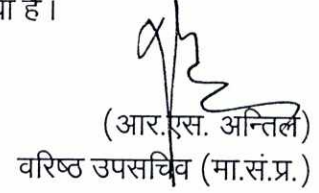 है।
(आर.एस. अन्तिल)
वरिष्ठ उपसचिव (मा.सं.प्र.)